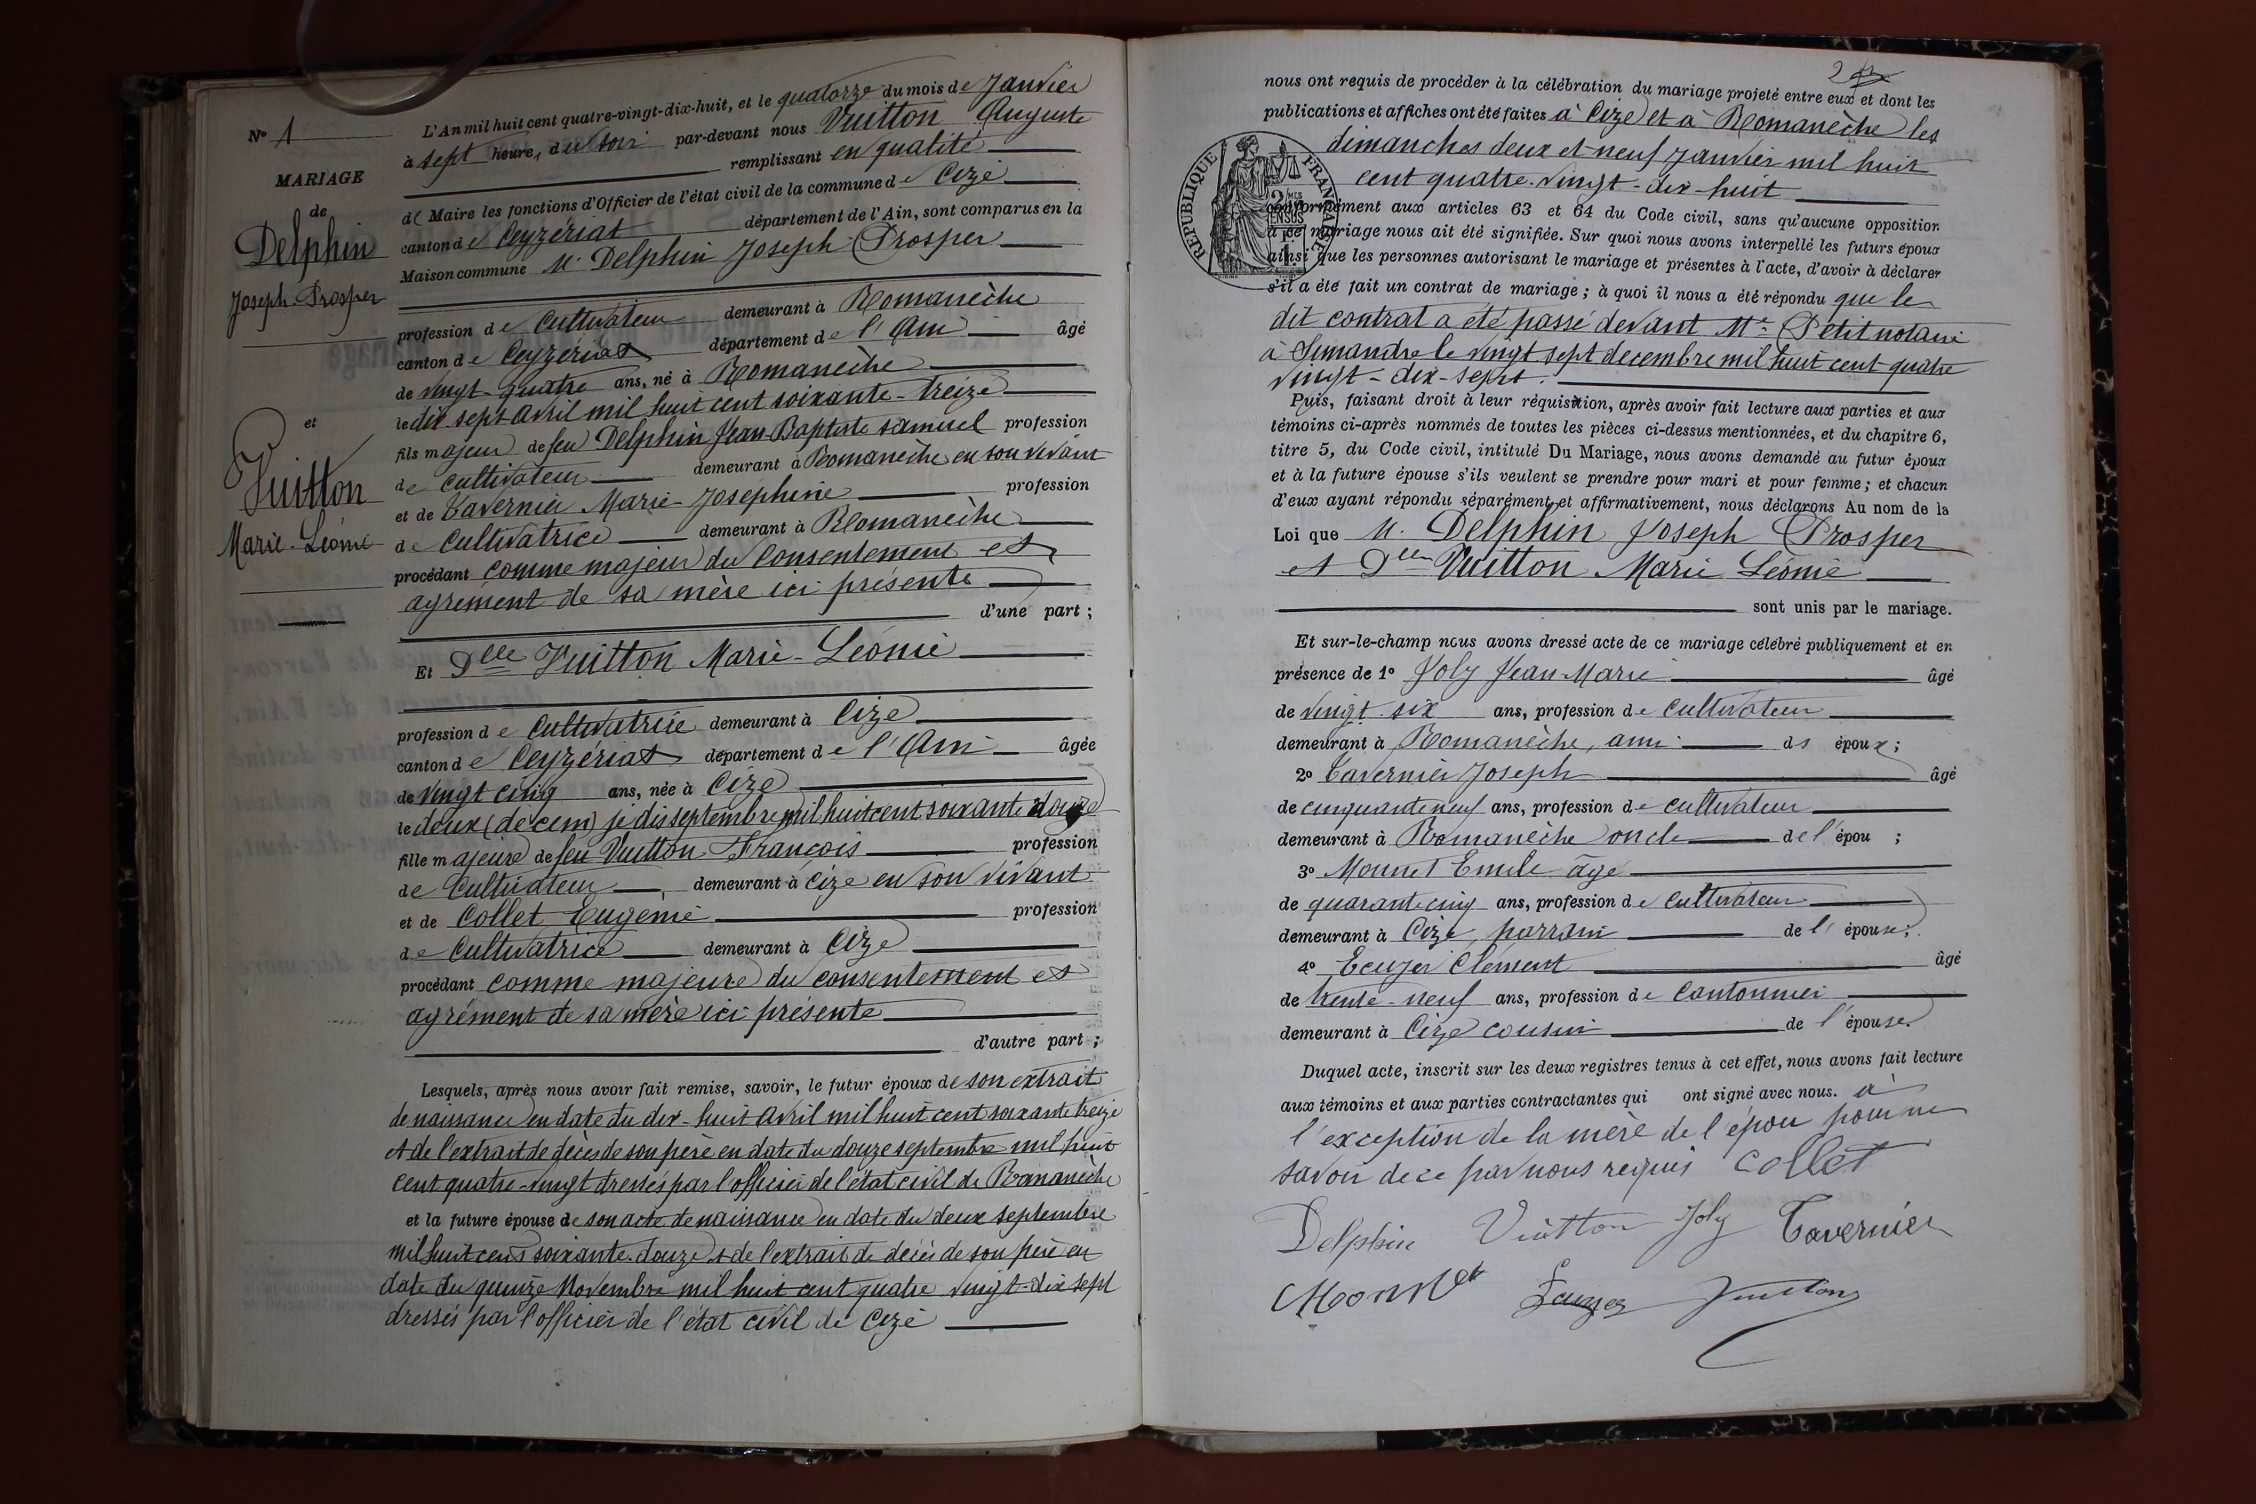 N° 1
MARIAGE
de
Delphin
Joseph-Prosper
et
Vuitton
Marie-Léonie
L'An mil huit cent quatre-vingt-dix-huit, et le quatorze du mois de Janvier
à sept heure, du soir par-devant nous Vuitton Auguste
remplissant en qualité
de Maire les fonctions d'Officier de l'état civil de la commune de Cize
canton de Ceyzériat département de l'Ain, sont comparus en la
Maison commune M. Delphin Joseph-Prosper
profession de Cultivateur demeurant à Romanèche
canton de Ceyzériat département de l'Ain âgé
de vingt-quatre ans, né à Romanèche
le dix-sept avril mil huit cent soixante-treize
fils majeur de feu Delphin Jean-Baptiste Samuel profession
de cultivateur demeurant à Romanèche en son vivant
et de Tavernier Marie-Joséphine profession
de Cultivatrice demeurant à Romanèche
procédant comme majeur du consentement et
agrément de sa mère ici présente
d'une part ;
Et Dlle Vuitton Marie-Léonie
profession de Cultivatrice demeurant à Cize
canton de Ceyzériat département de l'Ain âgée
de vingt cinq ans, née à Cize
le deux (décem) je dis septembre mil huit cent soixante douze
fille majeure de feu Vuitton François profession
de Cultivateur demeurant à Cize en son vivant
et de Collet Eugénie profession
de Cultivatrice demeurant à Cize
procédant comme majeure du consentement et
agrément de sa mère ici présente
d'autre part ;
Lesquels, après nous avoir fait remise, savoir, le futur époux de son extrait
de naissance en date du dix-huit avril mil huit cent soixante treize
et de l'extrait de décès de son père en date du douze septembre mil huit
cent quatre-vingt dressés par l'officier de l'état civil de Romanèche
et la future épouse de son acte de naissance en date du deux septembre
mil huit cent soixante-douze et de l'extrait de décès de son père en
date du quinze Novembre mil huit cent quatre vingt-dix sept
dressés par l'officier de l'état civil de Cize
2
nous ont requis de procéder à la célébration du mariage projeté entre eux et dont les
publications et affiches ont été faites à Cize et à Romanèche les
dimanches deux et neuf Janvier mil huit
cent quatre-vingt-dix-huit
RÉPUBLIQUE FRANÇAISE
conformément aux articles 63 et 64 du Code civil, sans qu'aucune opposition
à ce mariage nous ait été signifiée. Sur quoi nous avons interpellé les futurs époux
ainsi que les personnes autorisant le mariage et présentes à l'acte, d'avoir à déclarer
s'il a été fait un contrat de mariage ; à quoi il nous a été répondu que le
dit contrat a été passé devant Me Petit notaire
à Simandre le vingt sept decembre mil huit cent quatre
vingt-dix-sept.
Puis, faisant droit à leur réquisition, après avoir fait lecture aux parties et aux
témoins ci-après nommés de toutes les pièces ci-dessus mentionnées, et du chapitre 6,
titre 5, du Code civil, intitulé Du Mariage, nous avons demandé au futur époux
et à la future épouse s'ils veulent se prendre pour mari et pour femme ; et chacun
d'eux ayant répondu séparément et affirmativement, nous déclarons Au nom de la
Loi que M. Delphin Joseph Prosper
et Dlle Vuitton Marie Léonie
sont unis par le mariage.
Et sur-le-champ nous avons dressé acte de ce mariage célébré publiquement et en
présence de 1° Joly Jean-Marie âgé
de vingt-six ans, profession de cultivateur
demeurant à Romanèche, ami de époux ;
2° Tavernier Joseph âgé
de cinquante neuf ans, profession de cultivateur
demeurant à Romanèche oncle de l'épou ;
3° Monnet Emile âge
de quarante cinq ans, profession de cultivateur
demeurant à Cize, parrain de l'épouse ;
4° Ecuyer Clément âgé
de trente-neuf ans, profession de Cantonnier
demeurant à Cize cousin de l'épouse
Duquel acte, inscrit sur les deux registres tenus à cet effet, nous avons fait lecture
aux témoins et aux parties contractantes qui ont signé avec nous. à
l'exception de la mère de l'épou pour ne
savoir de ce par nous requis Collet
Delphin Vuitton Joly Tavernier
Monnet Ecuyer Vuitton